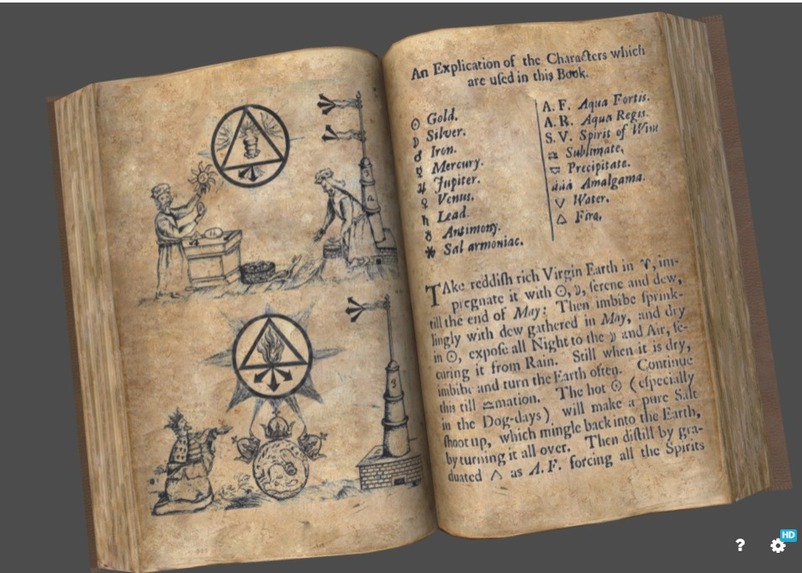 An Explication of the Characters which
are used in this Book.
☉ Gold.
☽ Silver.
♂ Iron.
☿ Mercury.
♃ Jupiter.
♀ Venus.
♄ Lead.
♁ Antimony.
✱ Sal armoniac.
A. F. Aqua Fortis.
A. R. Aqua Regis.
S. V. Spirit of Wine
♎ Sublimate.
Precipitate.
āāā Amalgama.
▽ Water.
△ Fire.
TAke reddish rich Virgin Earth in ♈, im-
pregnate it with ☉, ☽, serene and dew,
till the end of May: Then imbibe sprink-
lingly with dew gathered in May, and dry
in ☉, expose all Night to the ☽ and Air, se-
curing it from Rain. Still when it is dry,
imbibe and turn the Earth often. Continue
this till ♎mation. The hot ☉ (especially
in the Dog-days) will make a pure Salt
shoot up, which mingle back into the Earth,
by turning it all over. Then distill by gra-
duated △ as A. F. forcing all the Spirits
? HD